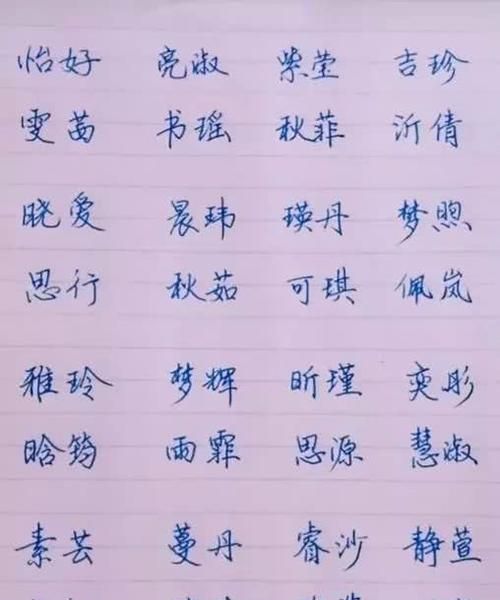 怡好 亮淑 紫莹 吉珍
雯茜 书瑶 秋菲 沂倩
晓爱 晨玮 瑛丹 梦煦
思行 秋茹 可琪 佩岚
雅玲 梦辉 昕瑾 奕彤
晗筠 雨霏 思源 慧淑
素芸 蔓丹 睿沙 静萱